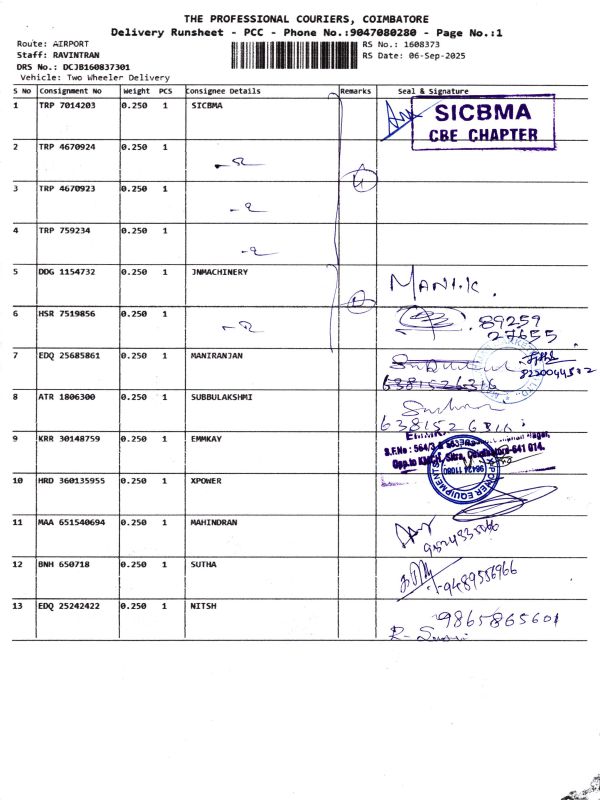 THE PROFESSIONAL COURIERS, COIMBATORE
Delivery Runsheet - PCC - Phone No.:9047080280 - Page No.:1
Route: AIRPORT
Staff: RAVINTRAN
DRS No.: DCJB160837301
Vehicle: Two Wheeler Delivery
RS No.: 1608373
RS Date: 06-Sep-2025
S No Consignment No Weight PCS Consignee Details Remarks Seal & Signature
1 TRP 7014203 0.250 1 SICBMA
SICBMA
CBE CHAPTER
2 TRP 4670924 0.250 1
3 TRP 4670923 0.250 1
4 TRP 759234 0.250 1
5 DDG 1154732 0.250 1 JNMACHINERY
6 HSR 7519856 0.250 1 89259
27655
7 EDQ 25685861 0.250 1 MANIRANJAN
6381526316
8 ATR 1806300 0.250 1 SUBBULAKSHMI
9 KRR 30148759 0.250 1 EMMKAY
S.F.No : 564/3
Opp.to KMCH, Sitra, Coimbatore-641 014.
POWER EQUIPMENTS
98434 11080
10 HRD 360135955 0.250 1 XPOWER
11 MAA 651540694 0.250 1 MAHINDRAN
12 BNH 650718 0.250 1 SUTHA
9489556966
13 EDQ 25242422 0.250 1 NITSH 9865865601